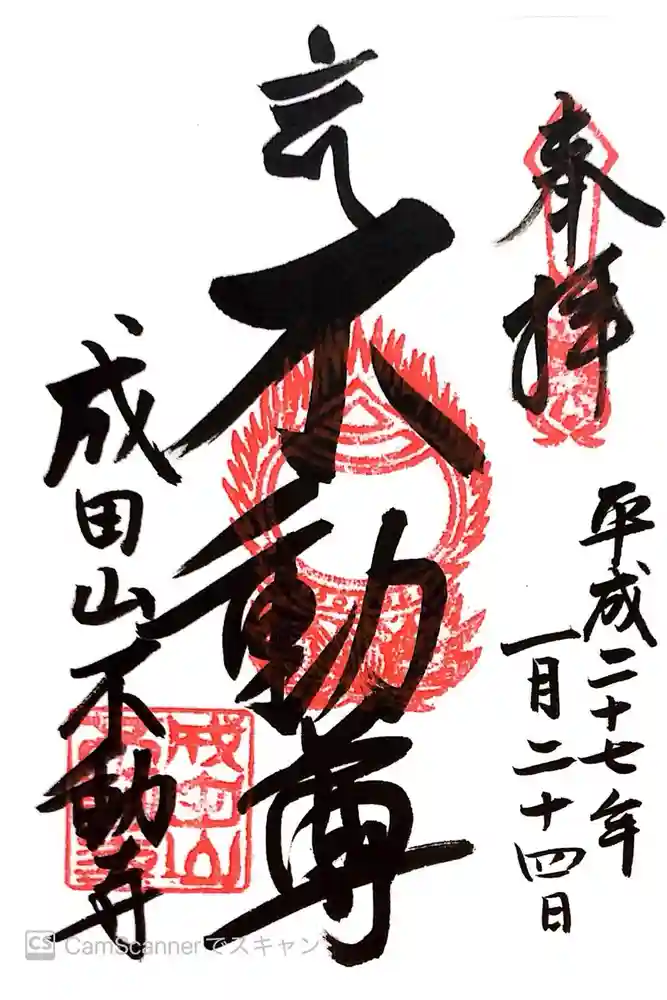 奉拝
平成二十七年
一月二十四日
不動尊
成田山不動寺
成田山
CS CamScannerでスキャン